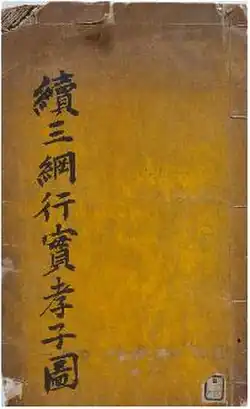 續三綱行實孝子圖